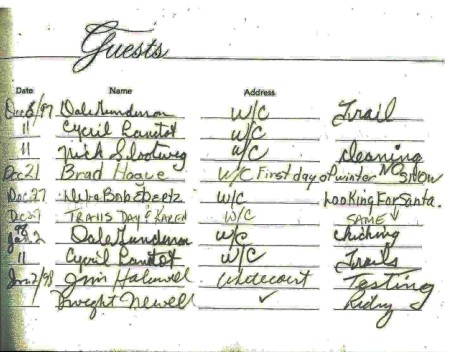 Guests
Date Name Address
Dec 6/97 Dale Gunderson W/C Trail
11 Cyril W/C
11 Nick Slootweg W/C cleaning
Dec 21 Brad Hogue W/C First day of winter NO SNOW
Dec 27 Bob W/C Looking For Santa.
Dec 27 TRAVIS DAY & KAREN W/C SAME ↓
98 Jan. 2 Dale Gunderson W/C Checking
11 Cyril W/C Trails
Jan 2/98 Jim Testing
Dwight Newell ✓